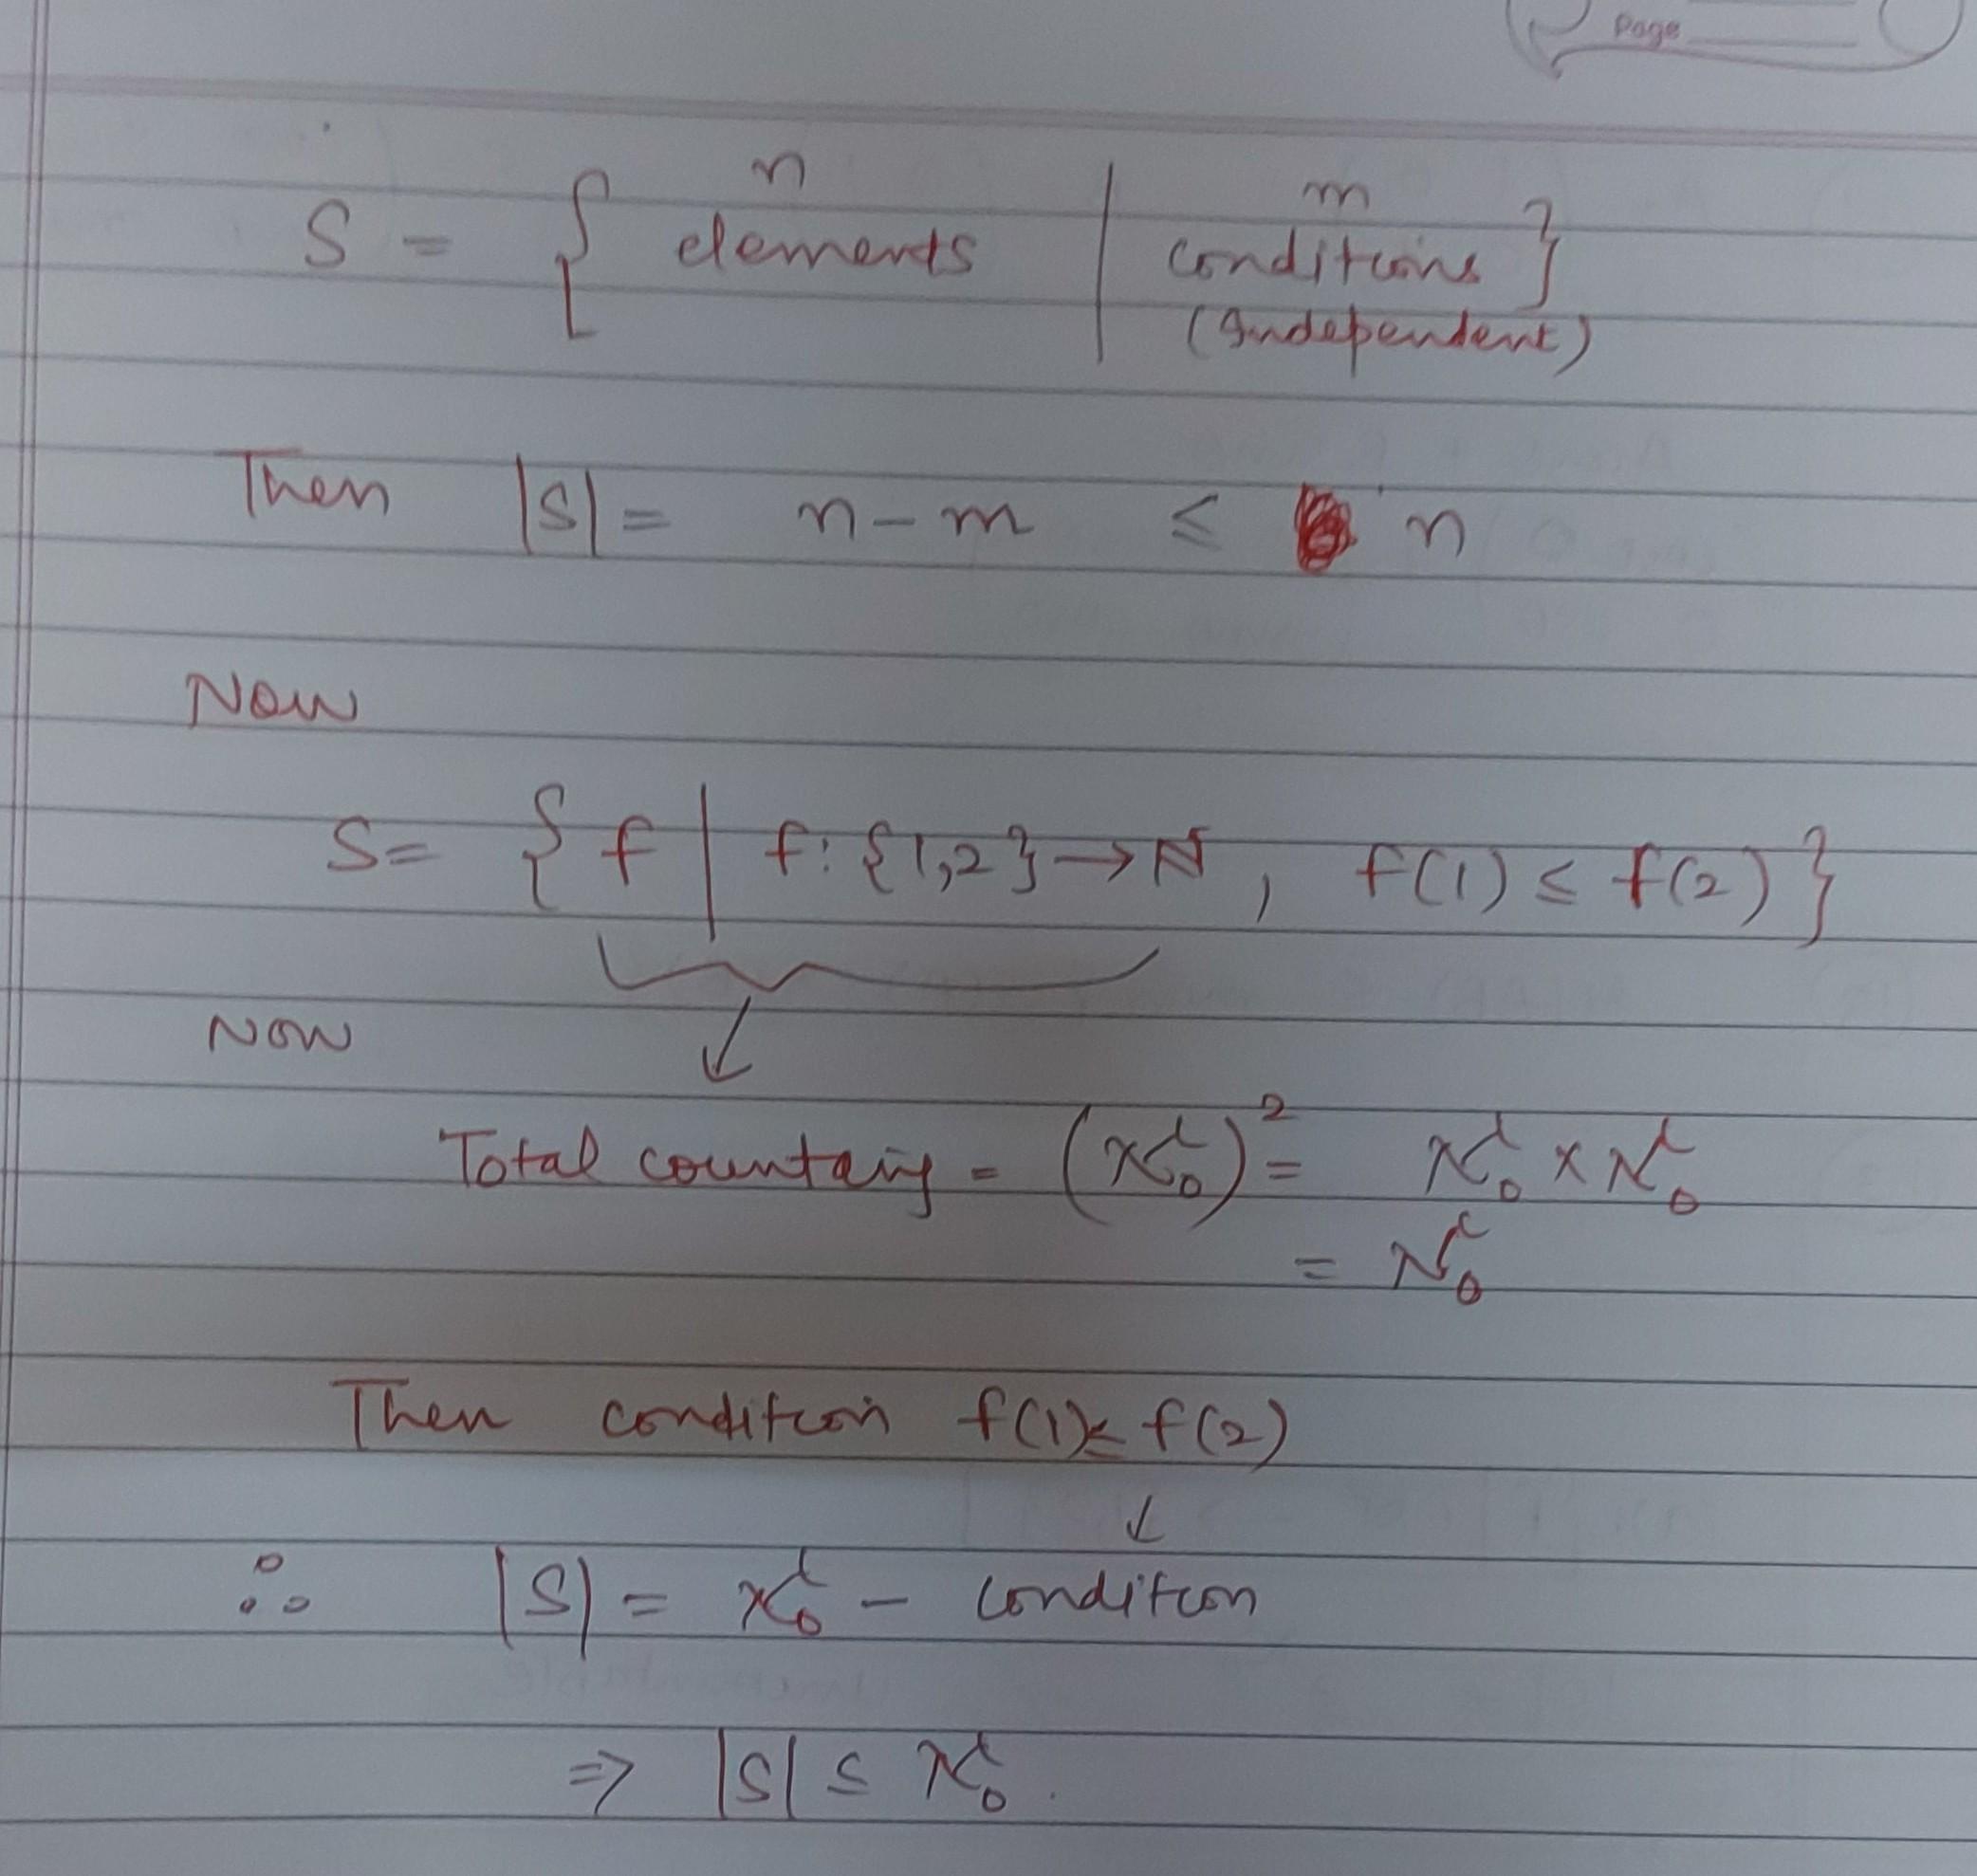 Page
S = { n elements | m conditions } (Independent)
Then |S| = n - m ≤ n
Now
S = { f | f: {1,2} → ℕ, f(1) ≤ f(2) }
Now
Total countaing = (ℵ₀)² = ℵ₀ × ℵ₀
= ℵ₀
Then condition f(1) ≤ f(2)
∴ |S| = ℵ₀ - condition
⇒ |S| ≤ ℵ₀.